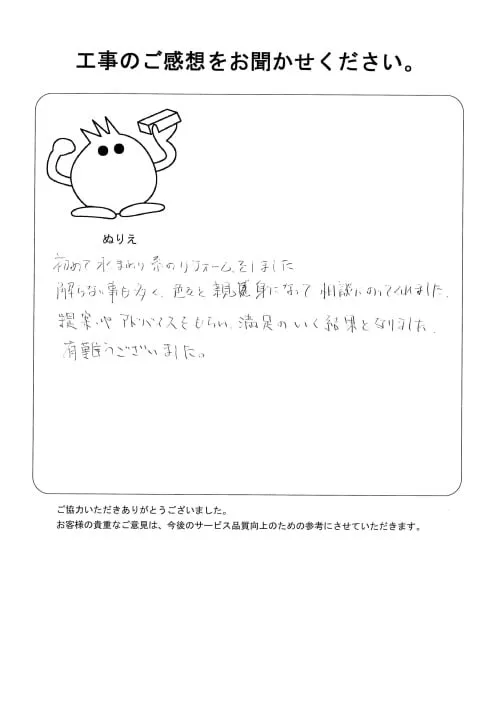 工事のご感想をお聞かせください。
ぬりえ
初めて水まわり系のリフォームをしました
解らない事も多く、色々と親身になって相談にのってくれました。
提案やアドバイスをもらい、満足のいく結果となりました。
有難うございました。
ご協力いただきありがとうございました。
お客様の貴重なご意見は、今後のサービス品質向上のための参考にさせていただきます。